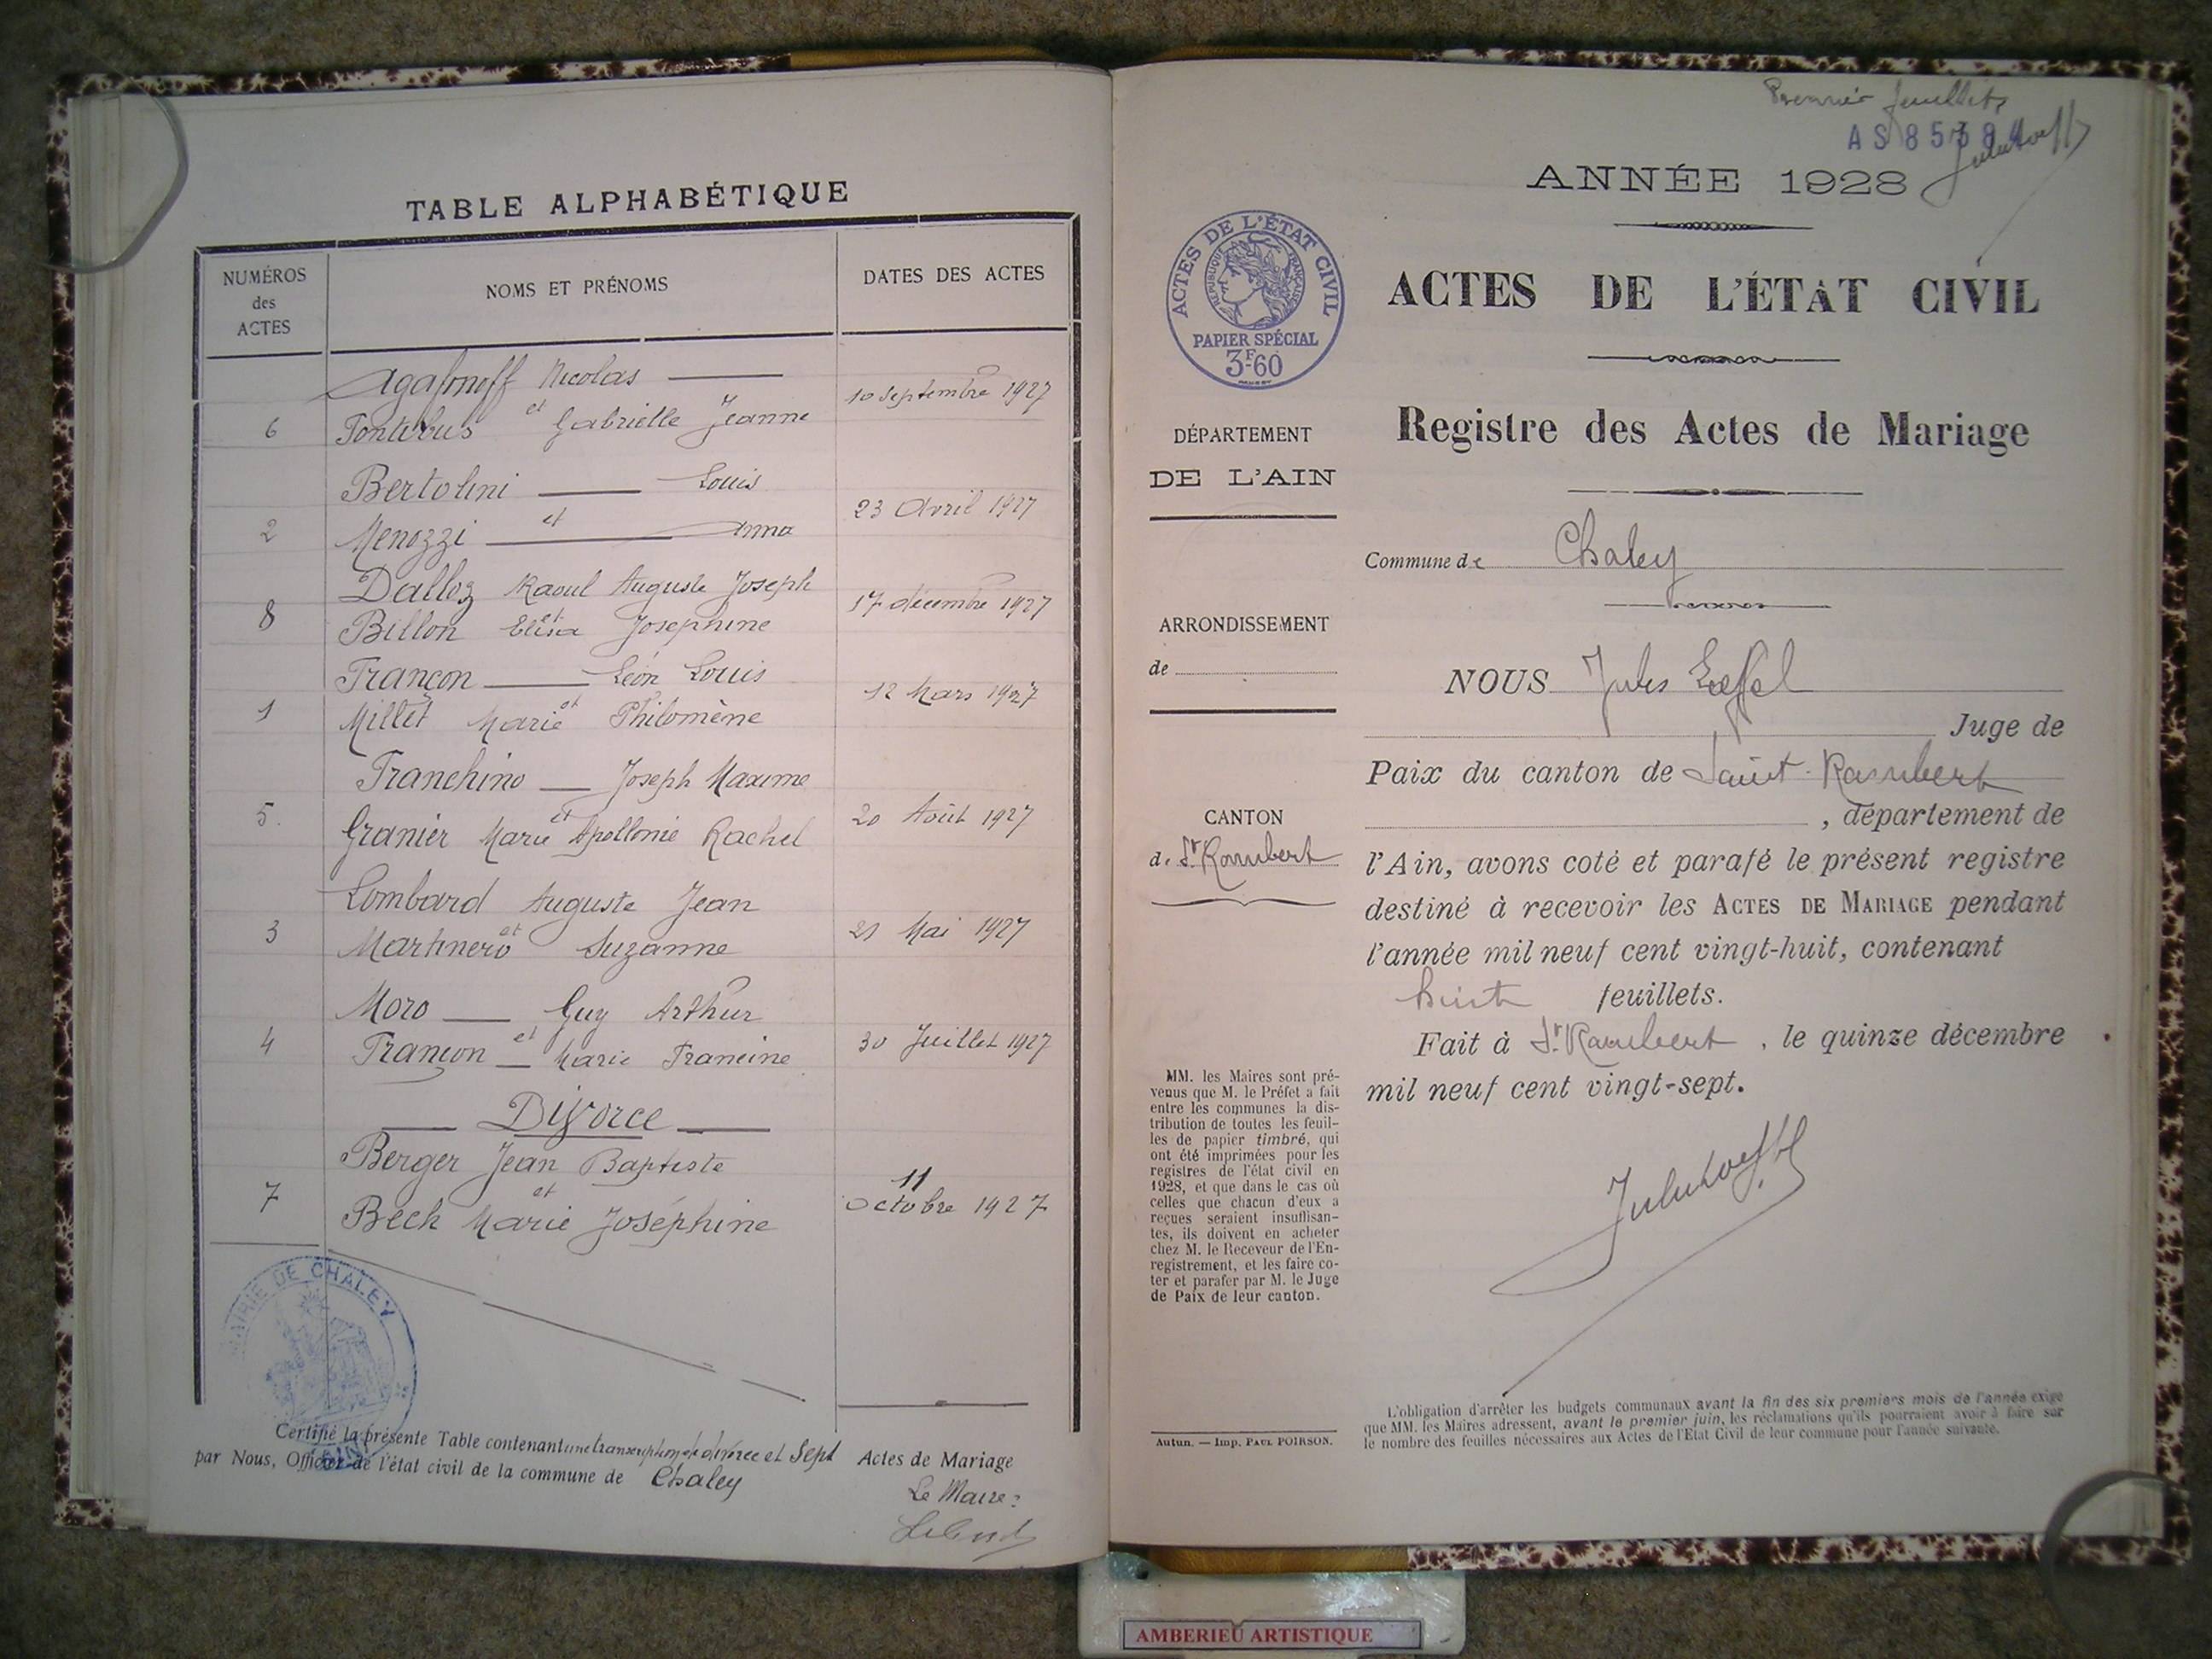 TABLE ALPHABÉTIQUE
NUMÉROS
des
ACTES
NOMS ET PRÉNOMS
DATES DES ACTES
Agafonoff Nicolas
10 Septembre 1927
et
6
Gabrielle Jeanne
Bertolini Louis
23 Avril 1927
et
2
Menozzi Anna
Dalloz Raoul Auguste Joseph
17 décembre 1927
et
8
Billon Elisa Josephine
Françon Léon Louis
12 Mars 1927
et
1
Millet Marie Philomène
Franchino Joseph Maxime
20 Août 1927
et
5.
Granier Marie Apollonie Rachel
Lombard Auguste Jean
21 Mai 1927
et
3
Martinero Suzanne
Moro Guy Arthur
30 Juillet 1927
et
4
Françon Marie Francine
Divorce
Berger Jean Baptiste
11
et
Octobre 1927
7
Beck Marie Joséphine
MAIRIE DE CHALEY
Certifié la présente Table contenant une transcription de divorce et Sept Actes de Mariage
par Nous, Officier de l'état civil de la commune de Chaley
Le Maire:
Premier feuillet
AS 85
ANNÉE 1928
ACTES DE L'ÉTAT CIVIL
RÉPUBLIQUE FRANÇAISE
PAPIER SPÉCIAL
3F60
ACTES DE L'ÉTAT CIVIL
Registre des Actes de Mariage
DÉPARTEMENT
DE L'AIN
Commune de Chaley
ARRONDISSEMENT
de
NOUS Jules
Juge de
Paix du canton de Saint-Rambert
, département de
CANTON
de St Rambert
l'Ain, avons coté et parafé le présent registre
destiné à recevoir les ACTES DE MARIAGE pendant
l'année mil neuf cent vingt-huit, contenant
huit feuillets.
Fait à St Rambert, le quinze décembre
mil neuf cent vingt-sept.
MM. les Maires sont pré-
venus que M. le Préfet a fait
entre les communes la dis-
tribution de toutes les feuil-
les de papier timbré, qui
ont été imprimées pour les
registres de l'état civil en
1928, et que dans le cas où
celles que chacun d'eux a
reçues seraient insuffisan-
tes, ils doivent en acheter
chez M. le Receveur de l'En-
registrement, et les faire co-
ter et parafer par M. le Juge
de Paix de leur canton.
Autun. — Imp. PAUL POIRSON.
L'obligation d'arrêter les budgets communaux avant la fin des six premiers mois de l'année exige
que MM. les Maires adressent, avant le premier juin, les réclamations qu'ils pourraient avoir à faire sur
le nombre des feuilles nécessaires aux Actes de l'Etat Civil de leur commune pour l'année suivante.
AMBERIEU ARTISTIQUE